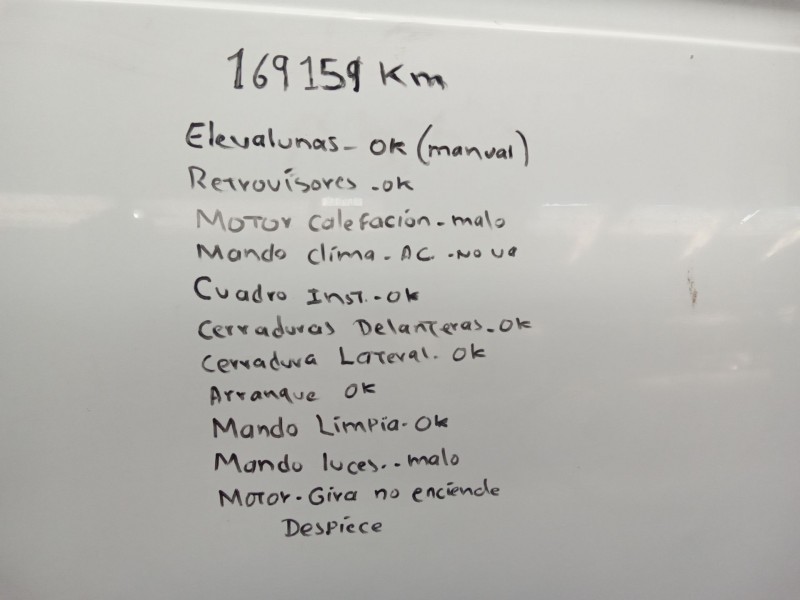 169159 Km
Elevalunas - OK (manual)
Retrovisores - ok
Motor Calefación - malo
Mando clima - AC. - No va
Cuadro Inst. - ok
Cerraduras Delanteras - OK
Cerradura Lateral. OK
Arranque OK
Mando Limpia - OK
Mando luces.. malo
Motor - Gira no enciende
Despiece